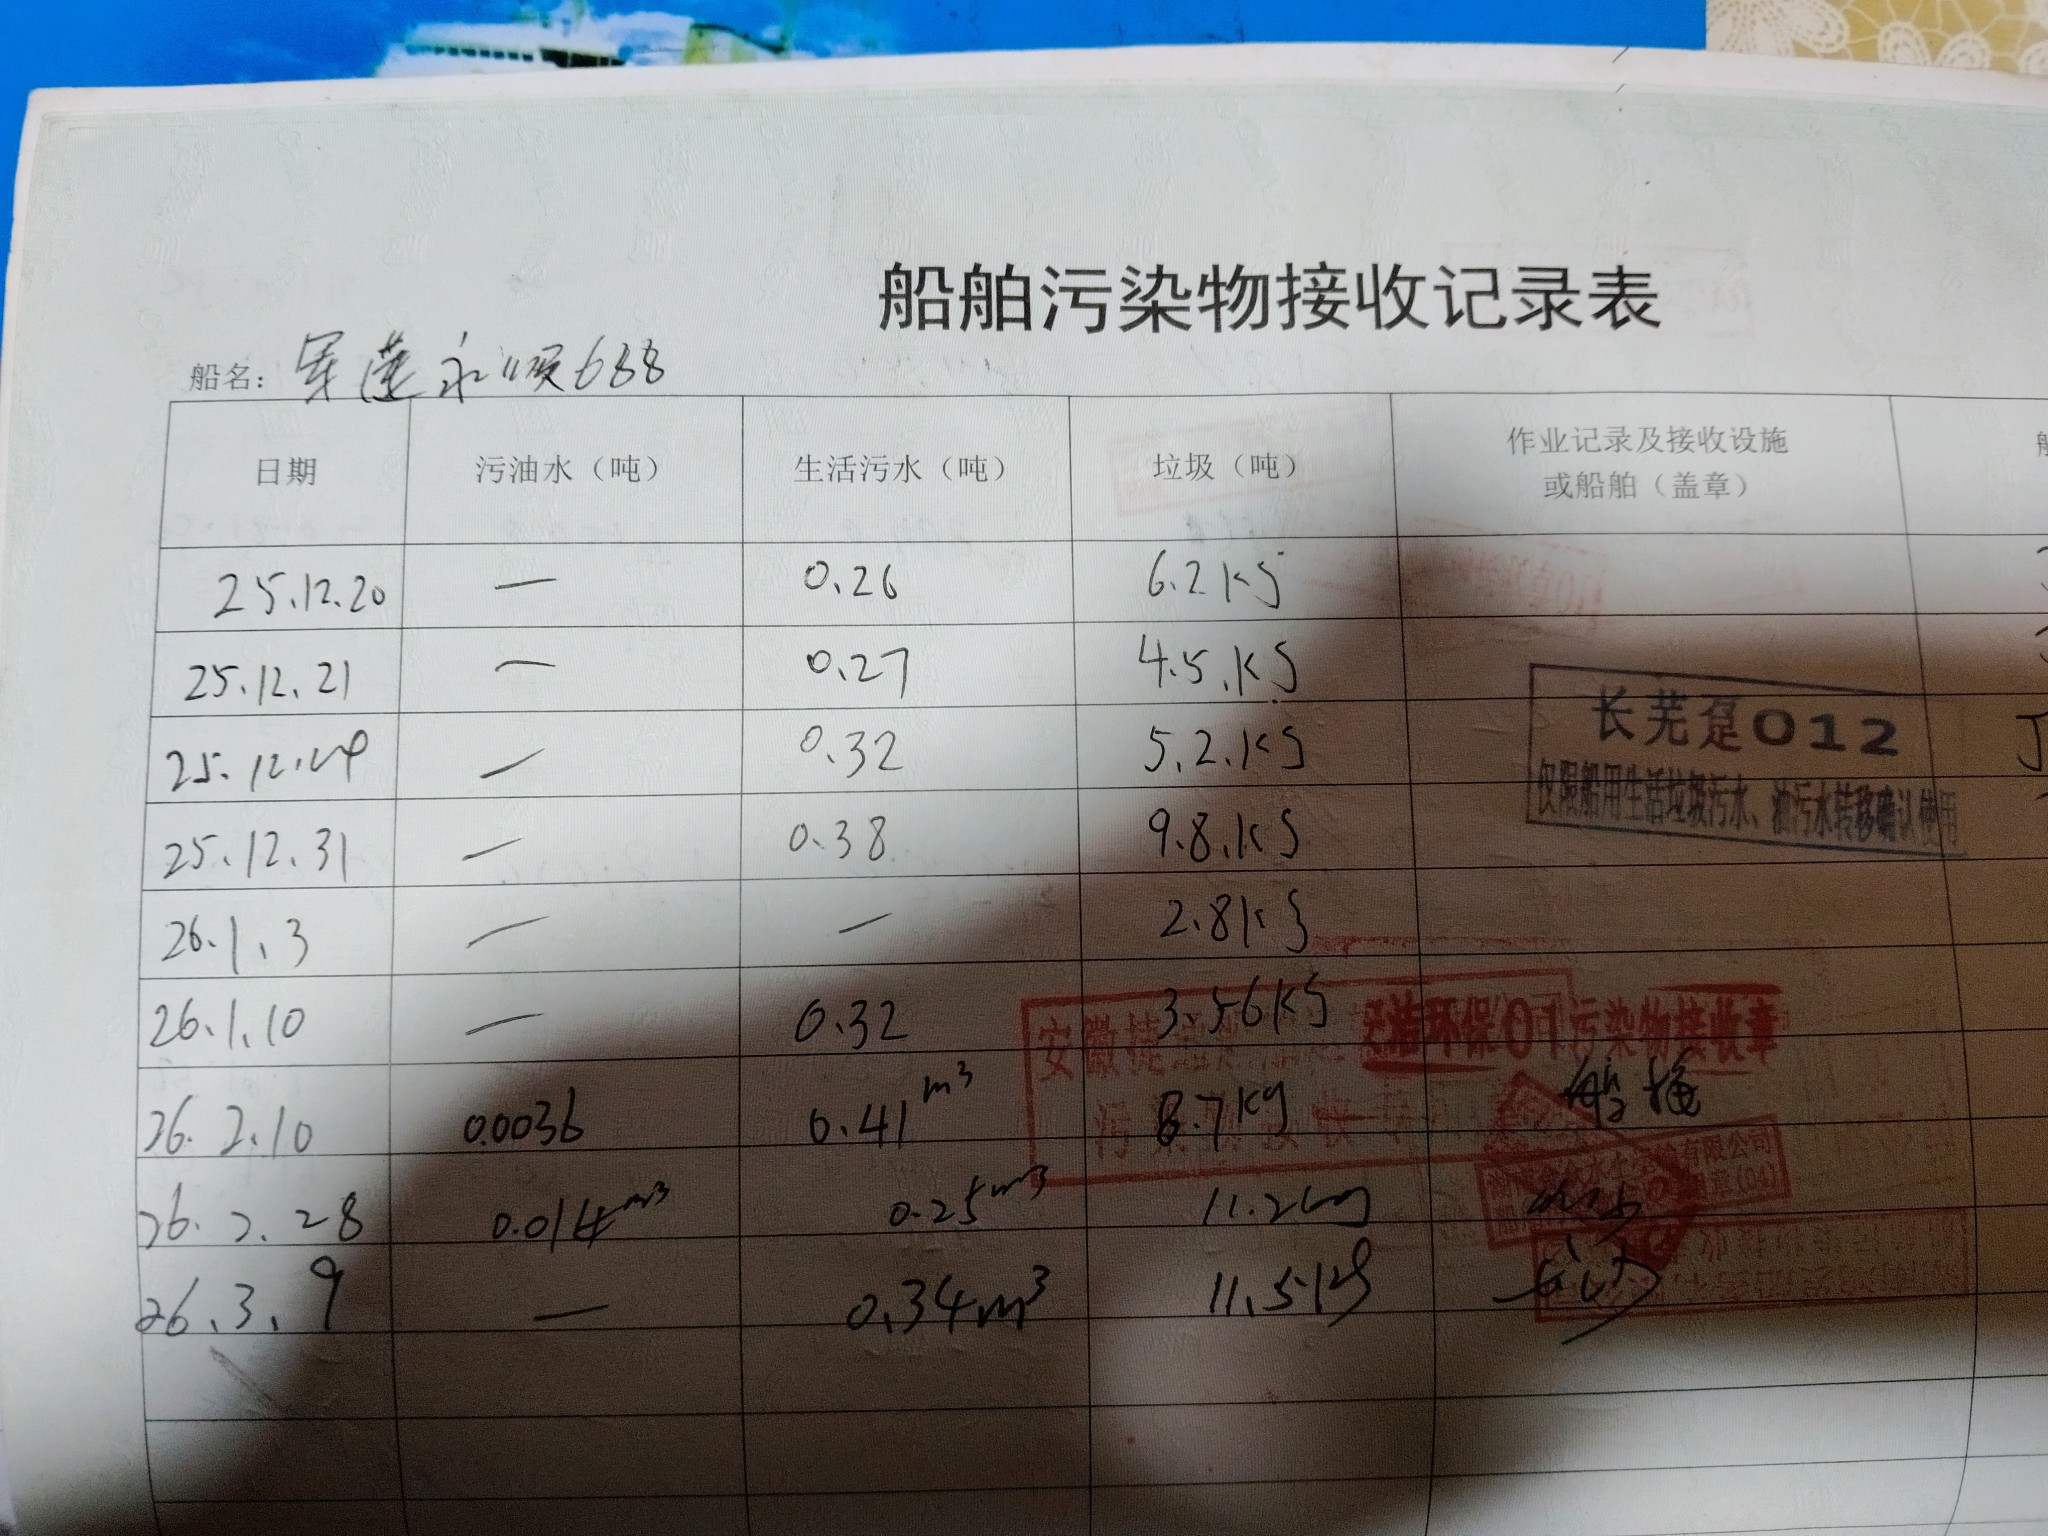 船舶污染物接收记录表
船名： 永顺688
日期 污油水（吨） 生活污水（吨） 垃圾（吨） 作业记录及接收设施
或船舶（盖章）
25.12.20 — 0.26 6.2kg
25.12.21 — 0.27 4.5.kg
长芜趸012
25.12.24 — 0.32 5.2.kg
仅限船用生活垃圾污水、油污水转移确认使用
25.12.31 — 0.38 9.8.kg
26.1.3 — — 2.8kg
26.1.10 — 0.32 3.56kg
安徽捷 洁环保01污染物接收章
污染物接收
26.2.10 0.0036 0.41m³ 8.7kg
有限公司
(04)
26.2.28 0.014m³ 0.25m³ 11.2kg
26.3.9 — 0.34m³ 11.5kg